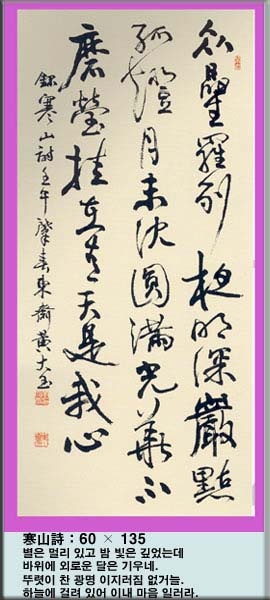 众星羅列夜明深巖點
孤燈月未沈圓滿光華不
磨瑩挂在青天是我心
録寒山詩壬午肇春東黃大
寒山詩 : 60 × 135
별은 멀리 있고 밤 빛은 깊었는데
바위에 외로운 달은 기우네.
뚜렷이 찬 광명 이지러짐 없거늘.
하늘에 걸려 있어 이내 마음 일러라.